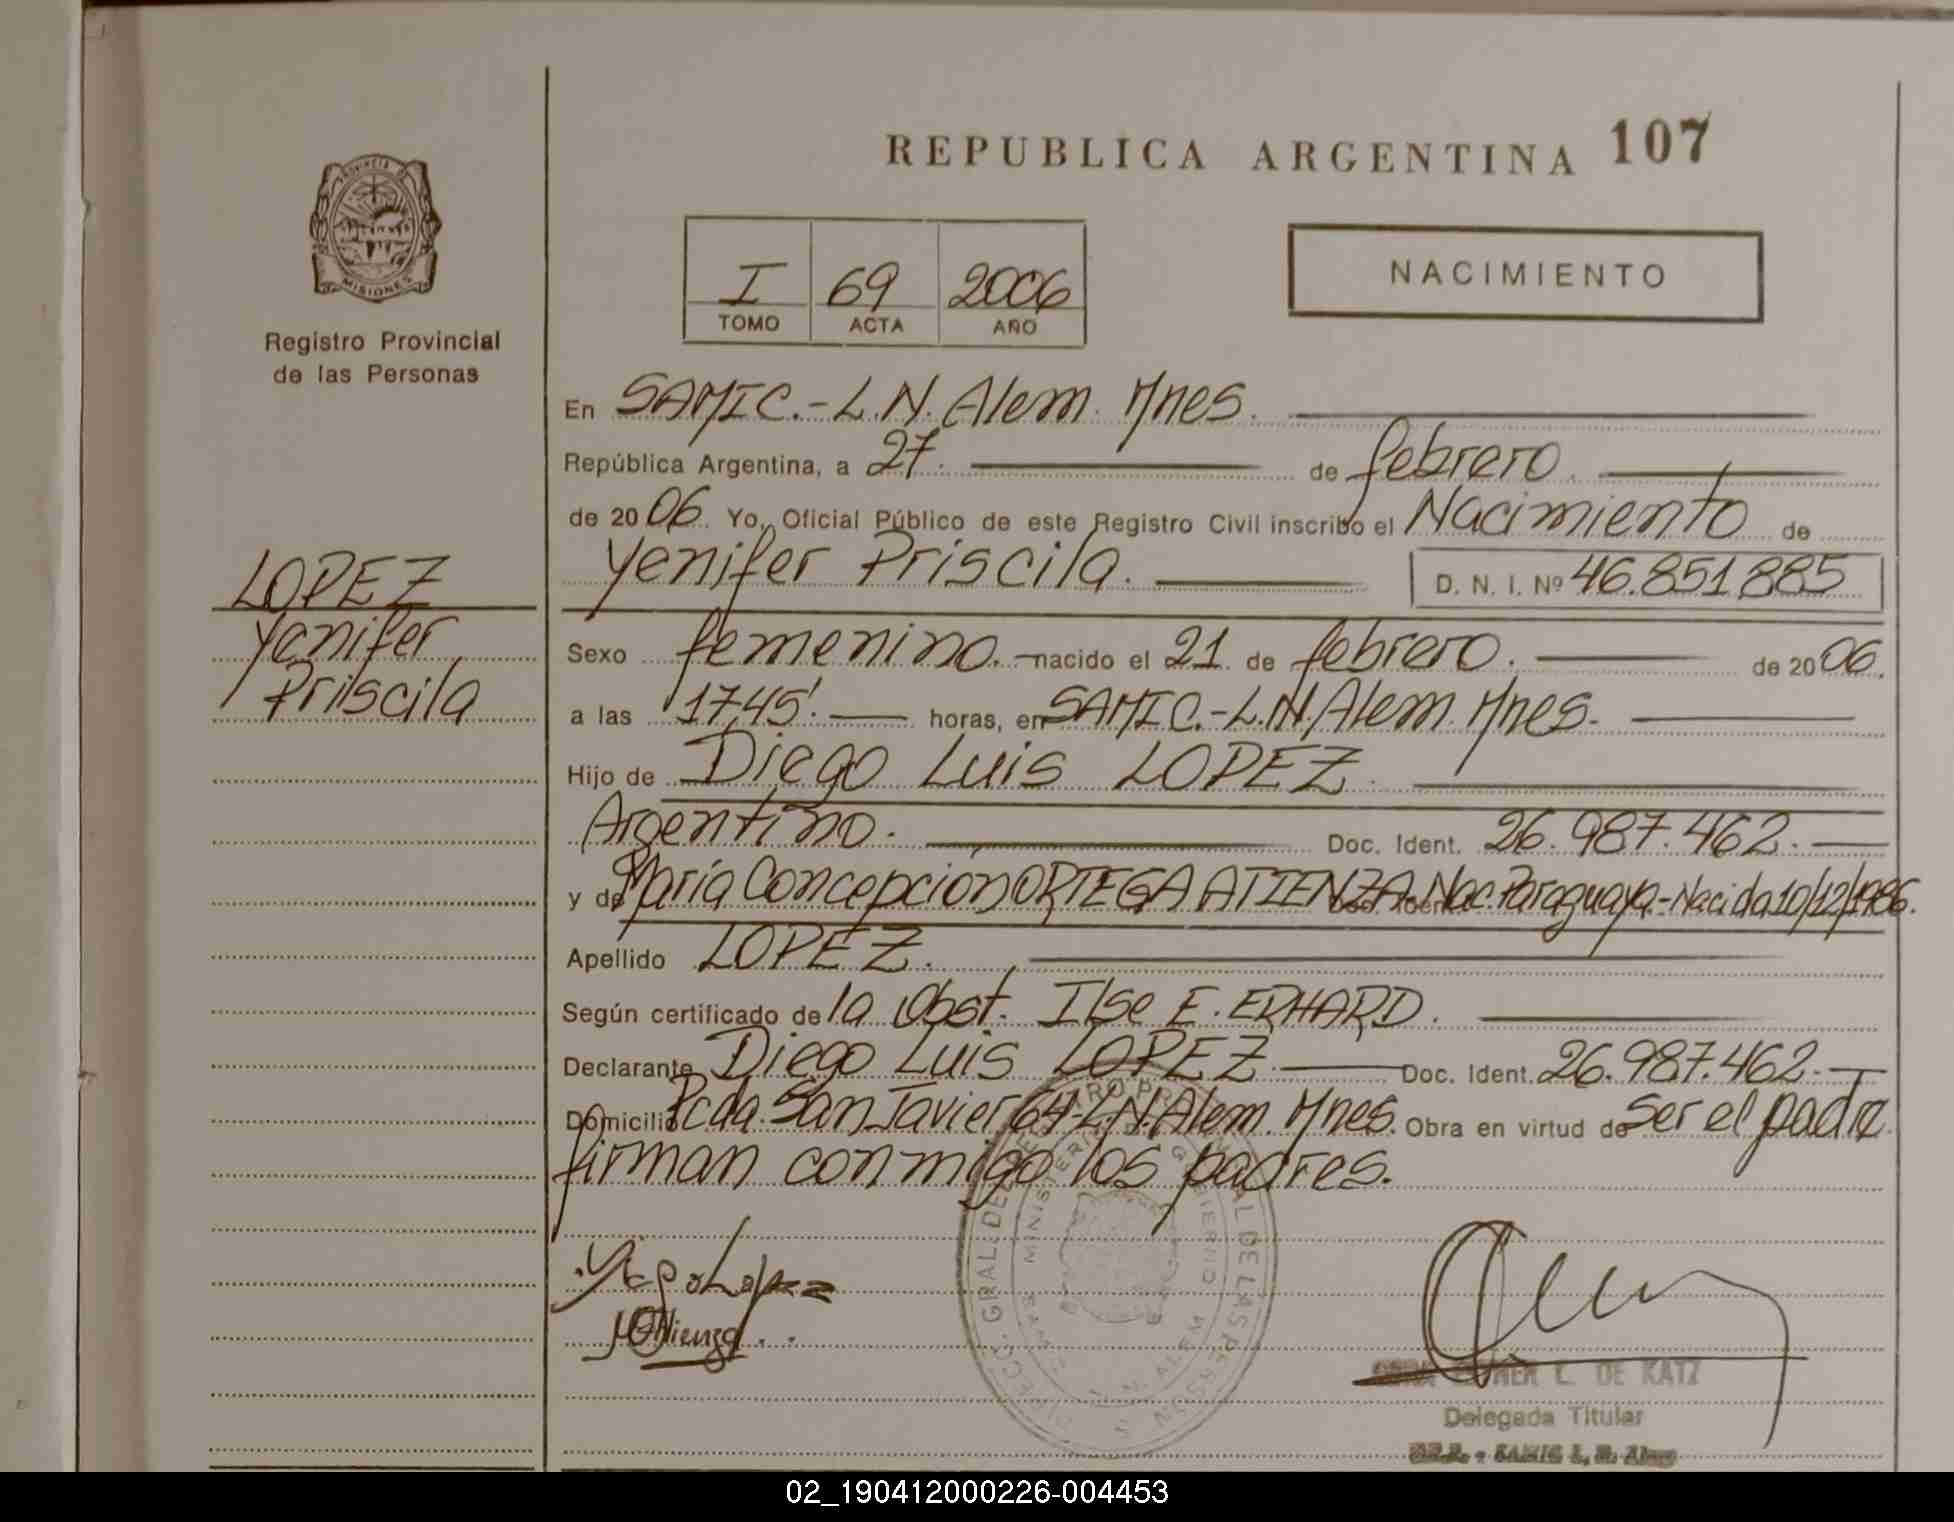 REPUBLICA ARGENTINA 107
PROVINCIA DE MISIONES
Registro Provincial
de las Personas
I 69 2006
TOMO ACTA AÑO
NACIMIENTO
En SAMIC.-L.N. Alem. Mnes.
República Argentina, a 27. de febrero.
de 2006. Yo, Oficial Público de este Registro Civil inscribo el Nacimiento de
Yenifer Priscila. D. N. I. Nº 46.851.885
LOPEZ
Yenifer
Priscila
Sexo femenino. nacido el 21 de febrero. de 2006.
a las 17,45'. horas, en SAMIC.-L.N. Alem. Mnes.
Hijo de Diego Luis LOPEZ.
Argentino. Doc. Ident. 26.987.462.
y de María Concepción ORTEGA ATIENZA. Nac. Paraguaya.-Nacida 10/12/1986.
Apellido LOPEZ.
Según certificado de la Obst. Ilse E. ERHARD.
Declarante Diego Luis LOPEZ. Doc. Ident. 26.987.462.
Domicilio Pcda. San Javier 64-L.N. Alem. Mnes. Obra en virtud de ser el padre
firman conmigo los padres.
DIRECC. GRAL. DEL REGISTRO PROVINCIAL DE LAS PERSONAS
MINISTERIO DE GOBIERNO
L. N. ALEM
Lopez
Atienza
L. DE KATZ
Delegada Titular
SAMIC L. N. Alem
02_190412000226-004453